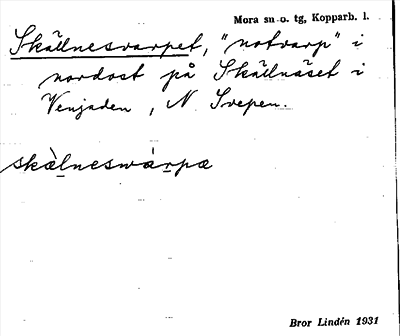 Mora sn o. tg, Kopparb. l.
Skällnesvarpet, "notvarp" i
nordost på Skällnäset i
Venjaden, N. Svepen.
skàlneswàrpæ
Bror Lindén 1931